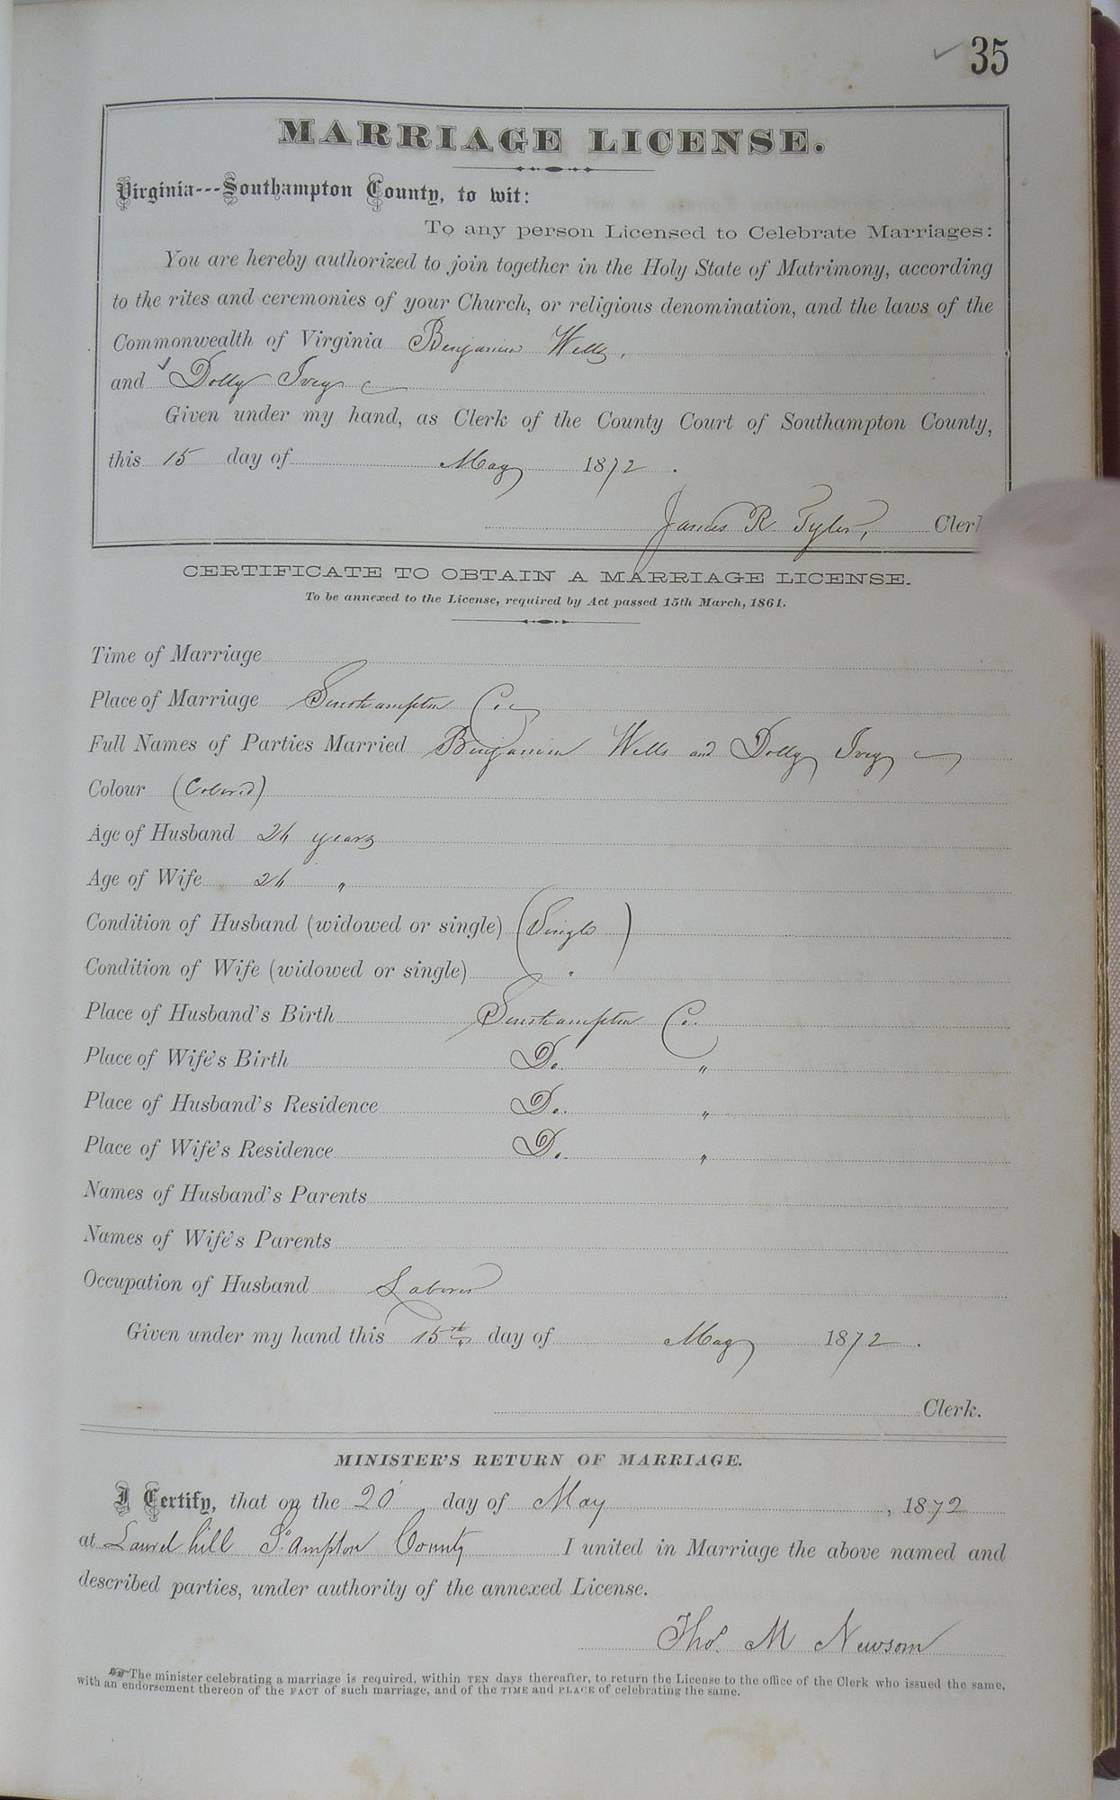 ✓ 35
MARRIAGE LICENSE.
Virginia---Southampton County, to wit:
To any person Licensed to Celebrate Marriages:
You are hereby authorized to join together in the Holy State of Matrimony, according
to the rites and ceremonies of your Church, or religious denomination, and the laws of the
Commonwealth of Virginia Benjamin Wells,
and ✓ Dolly Ivey
Given under my hand, as Clerk of the County Court of Southampton County,
this 15 day of May 1872.
James R. Tyler, Clerk
CERTIFICATE TO OBTAIN A MARRIAGE LICENSE.
To be annexed to the License, required by Act passed 15th March, 1861.
Time of Marriage
Place of Marriage Southampton Co.
Full Names of Parties Married Benjamin Wells and Dolly Ivey
Colour (Colored)
Age of Husband 24 years
Age of Wife 24 "
Condition of Husband (widowed or single) (Single)
Condition of Wife (widowed or single) "
Place of Husband's Birth Southampton Co.
Place of Wife's Birth Do. "
Place of Husband's Residence Do. "
Place of Wife's Residence Do. "
Names of Husband's Parents
Names of Wife's Parents
Occupation of Husband Laborer
Given under my hand this 15th day of May 1872.
Clerk.
MINISTER'S RETURN OF MARRIAGE.
I Certify, that on the 20 day of May, 1872
at Laurel hill S.ampton County I united in Marriage the above named and
described parties, under authority of the annexed License.
Thos. M Newsom
The minister celebrating a marriage is required, within TEN days thereafter, to return the License to the office of the Clerk who issued the same,
with an endorsement thereon of the FACT of such marriage, and of the TIME and PLACE of celebrating the same.